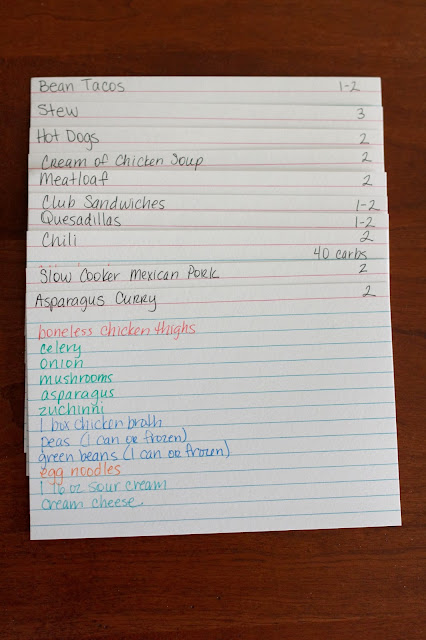 Bean Tacos 1-2
Stew 3
Hot Dogs 2
Cream of Chicken Soup 2
Meatloaf 2
Club Sandwiches 1-2
Quesadillas 1-2
Chili 2
40 carbs
Slow Cooker Mexican Pork 2
Asparagus Curry 2
boneless chicken thighs
celery
onion
mushrooms
asparagus
zuchinni
1 box chicken broth
peas (1 can or frozen)
green beans (1 can or frozen)
egg noodles
1 16 oz sour cream
cream cheese